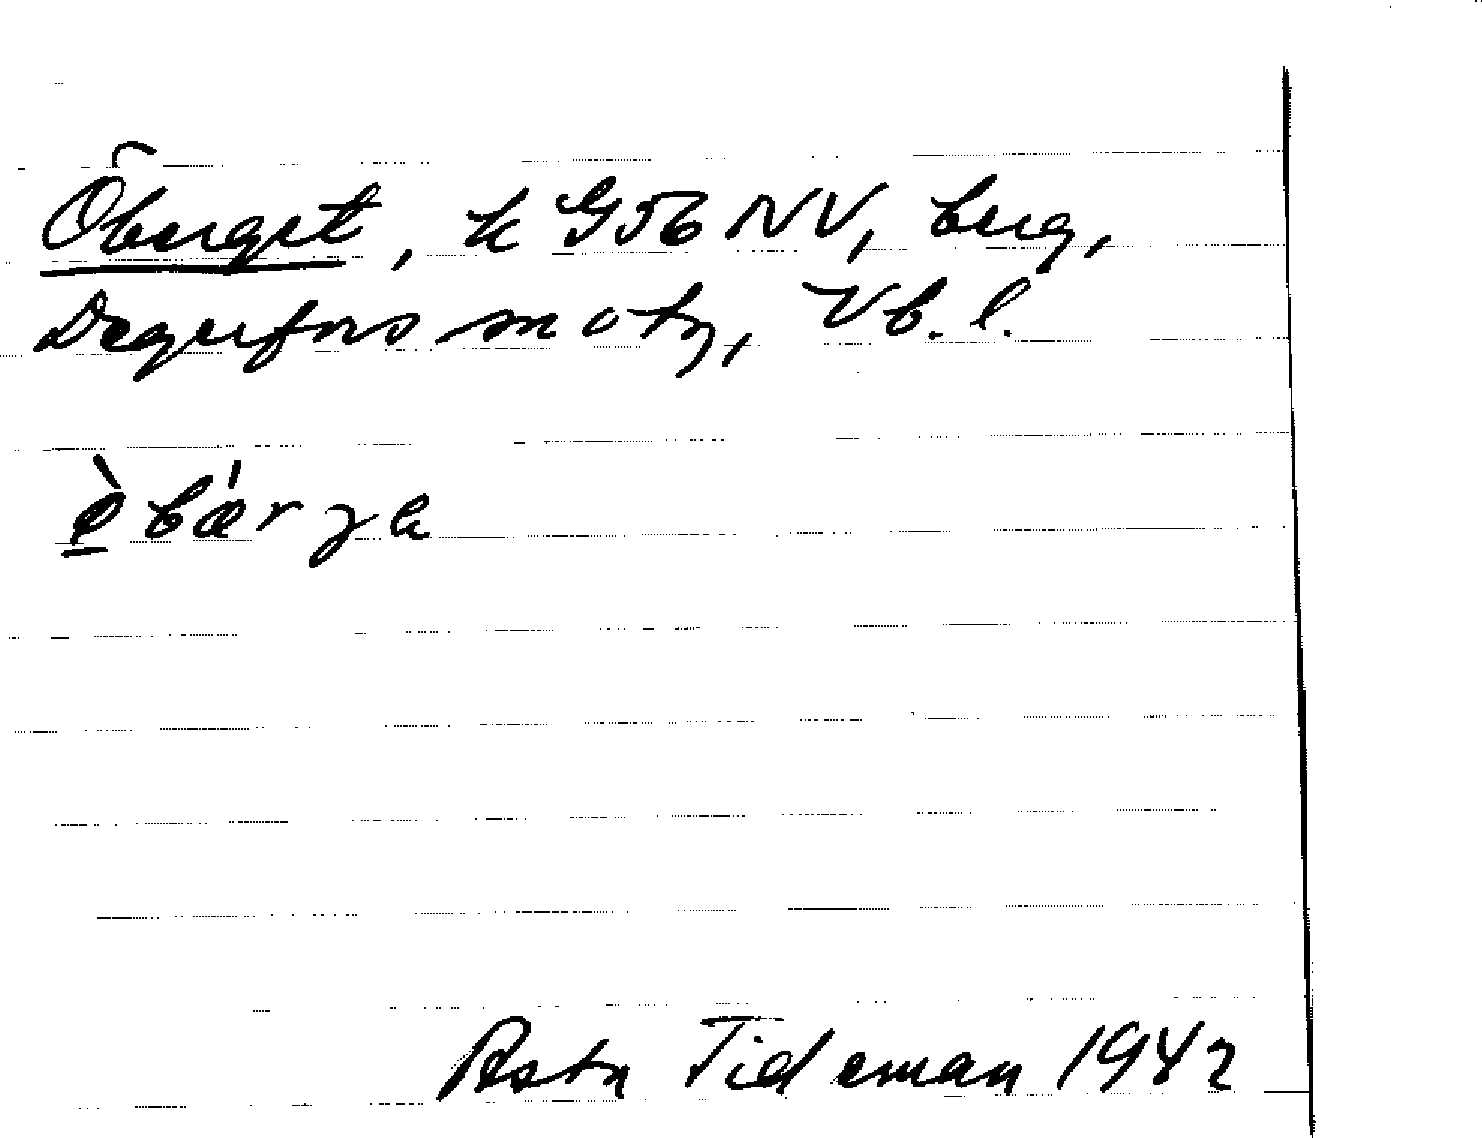 Öberget, k G56 NV, berg,
Degerfors sn o tg, Vb. l.
è bæ'r ɣ e
Asta Tideman 1942